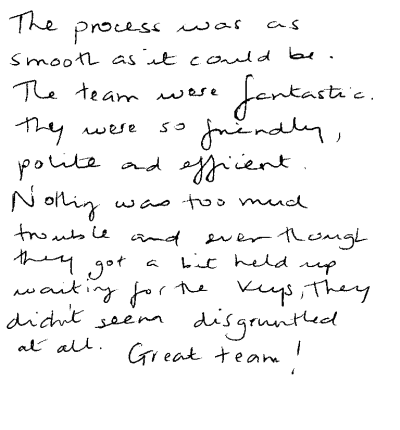 The process was as
smooth as it could be.
The team were fantastic.
They were so friendly,
polite and efficient.
Nothing was too much
trouble and even though
they got a bit held up
waiting for the keys, they
didn't seem disgruntled
at all. Great team!